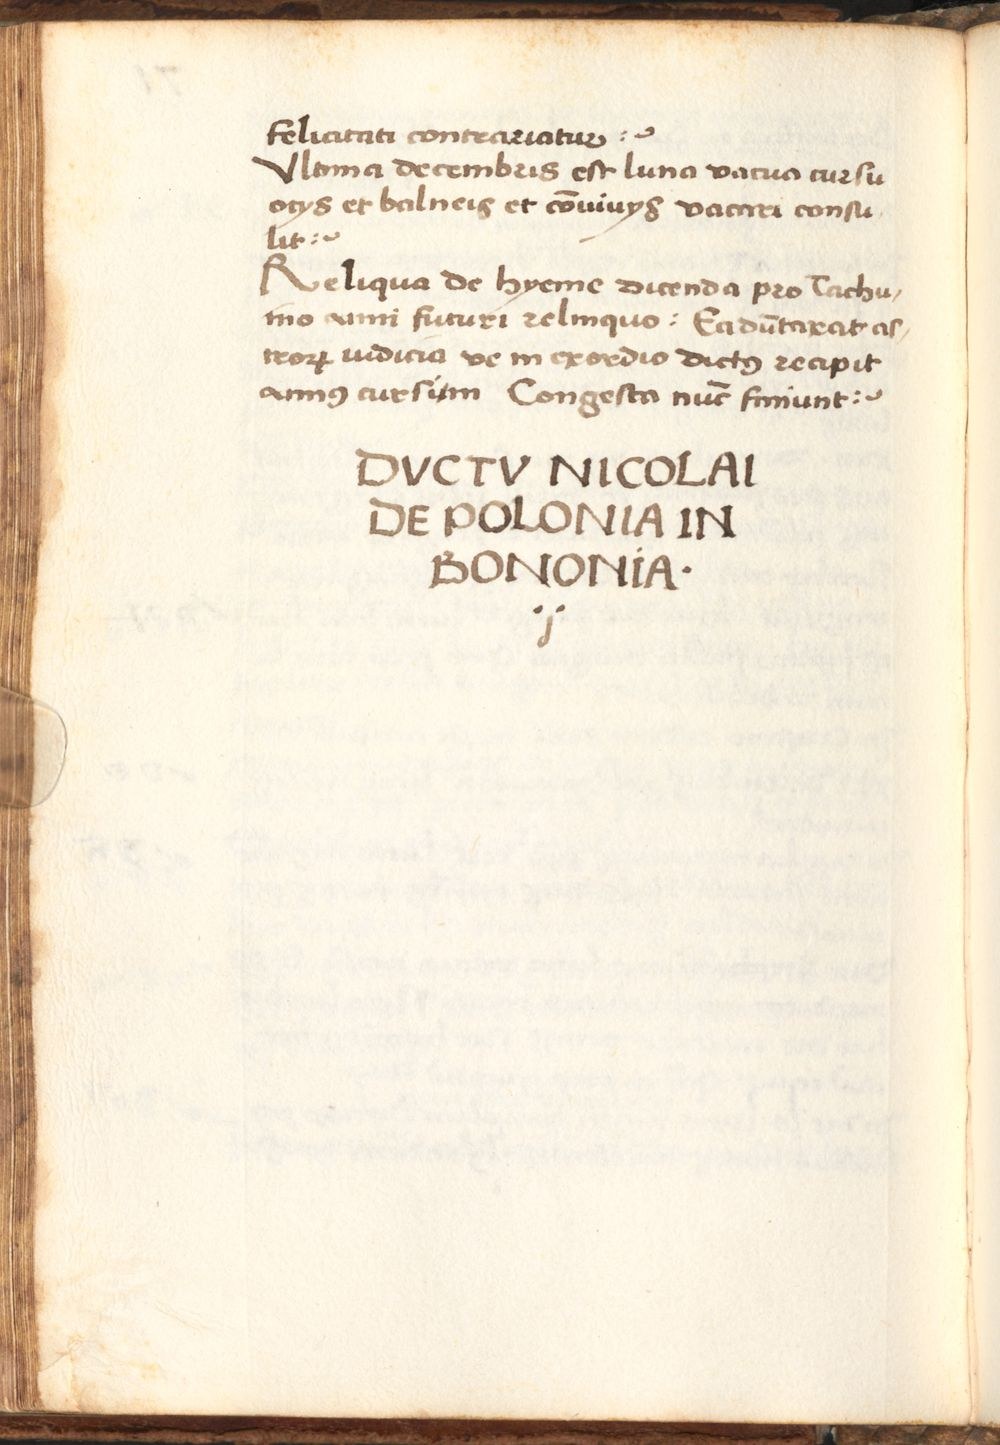 felicitati contrariatur :~
Vltima decembris est luna vacua cursu
ocys et balneis et cōuiuys vacari consu
lit :~
Reliqua de hyeme dicenda pro Tachu/
ino anni futuri relinquo : Ea dūtaxat as/
troꝝ iudicia ve in exordio dictꝯ recipit
annꝯ cursum Congesta nūc finiunt :~
DVCTV NICOLAI
DE POLONIA IN
BONONIA·